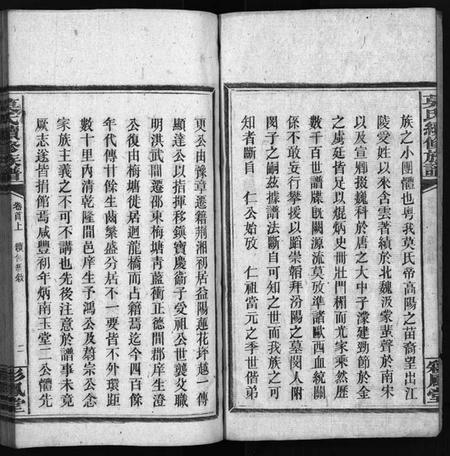 莫氏續修族譜
彩鳳堂
族之小團體也粵我莫氏帝高陽之苗裔至出江
陵愛姓以來含雲著績於北魏汲棠蜚聲於南宋
以及宣卿掇巍科於唐之大中子濛建勁節於金
之虞廷皆足以焜炳史冊壯門楣而光家乘然歷
數千百世譜牒旣闕源流莫攷準諸歐西血統關
係不敢妄行攀援以蹈崇韜拜汾陽之墓閔人附
閔子之嗣茲據譜法斷自可知之世而我族之可
知者斷自 仁公始攷 仁祖當元之季世偕弟
更公由豫章遷籍荆湘初居益陽蓮花坪越一傳
顯達公以指揮移鎭寳慶衞子愛祖公世襲父職
明洪武間遷邵東梅塘靑藍衝正德間郡庠生澄
公復由梅塘徙居迴龍橋而占籍焉迄今四百餘
年代傳廿餘生齒繁盛分居不一要皆不外環距
數十里內淸乾隆間邑庠生予鴻公及蒭宗公念
家族主義之不可不講也先後注意於譜事未竟
厥志遂皆捐館焉咸豐初年炳南玉堂二公體先
莫氏續修族譜
卷首上
二
彩鳳堂